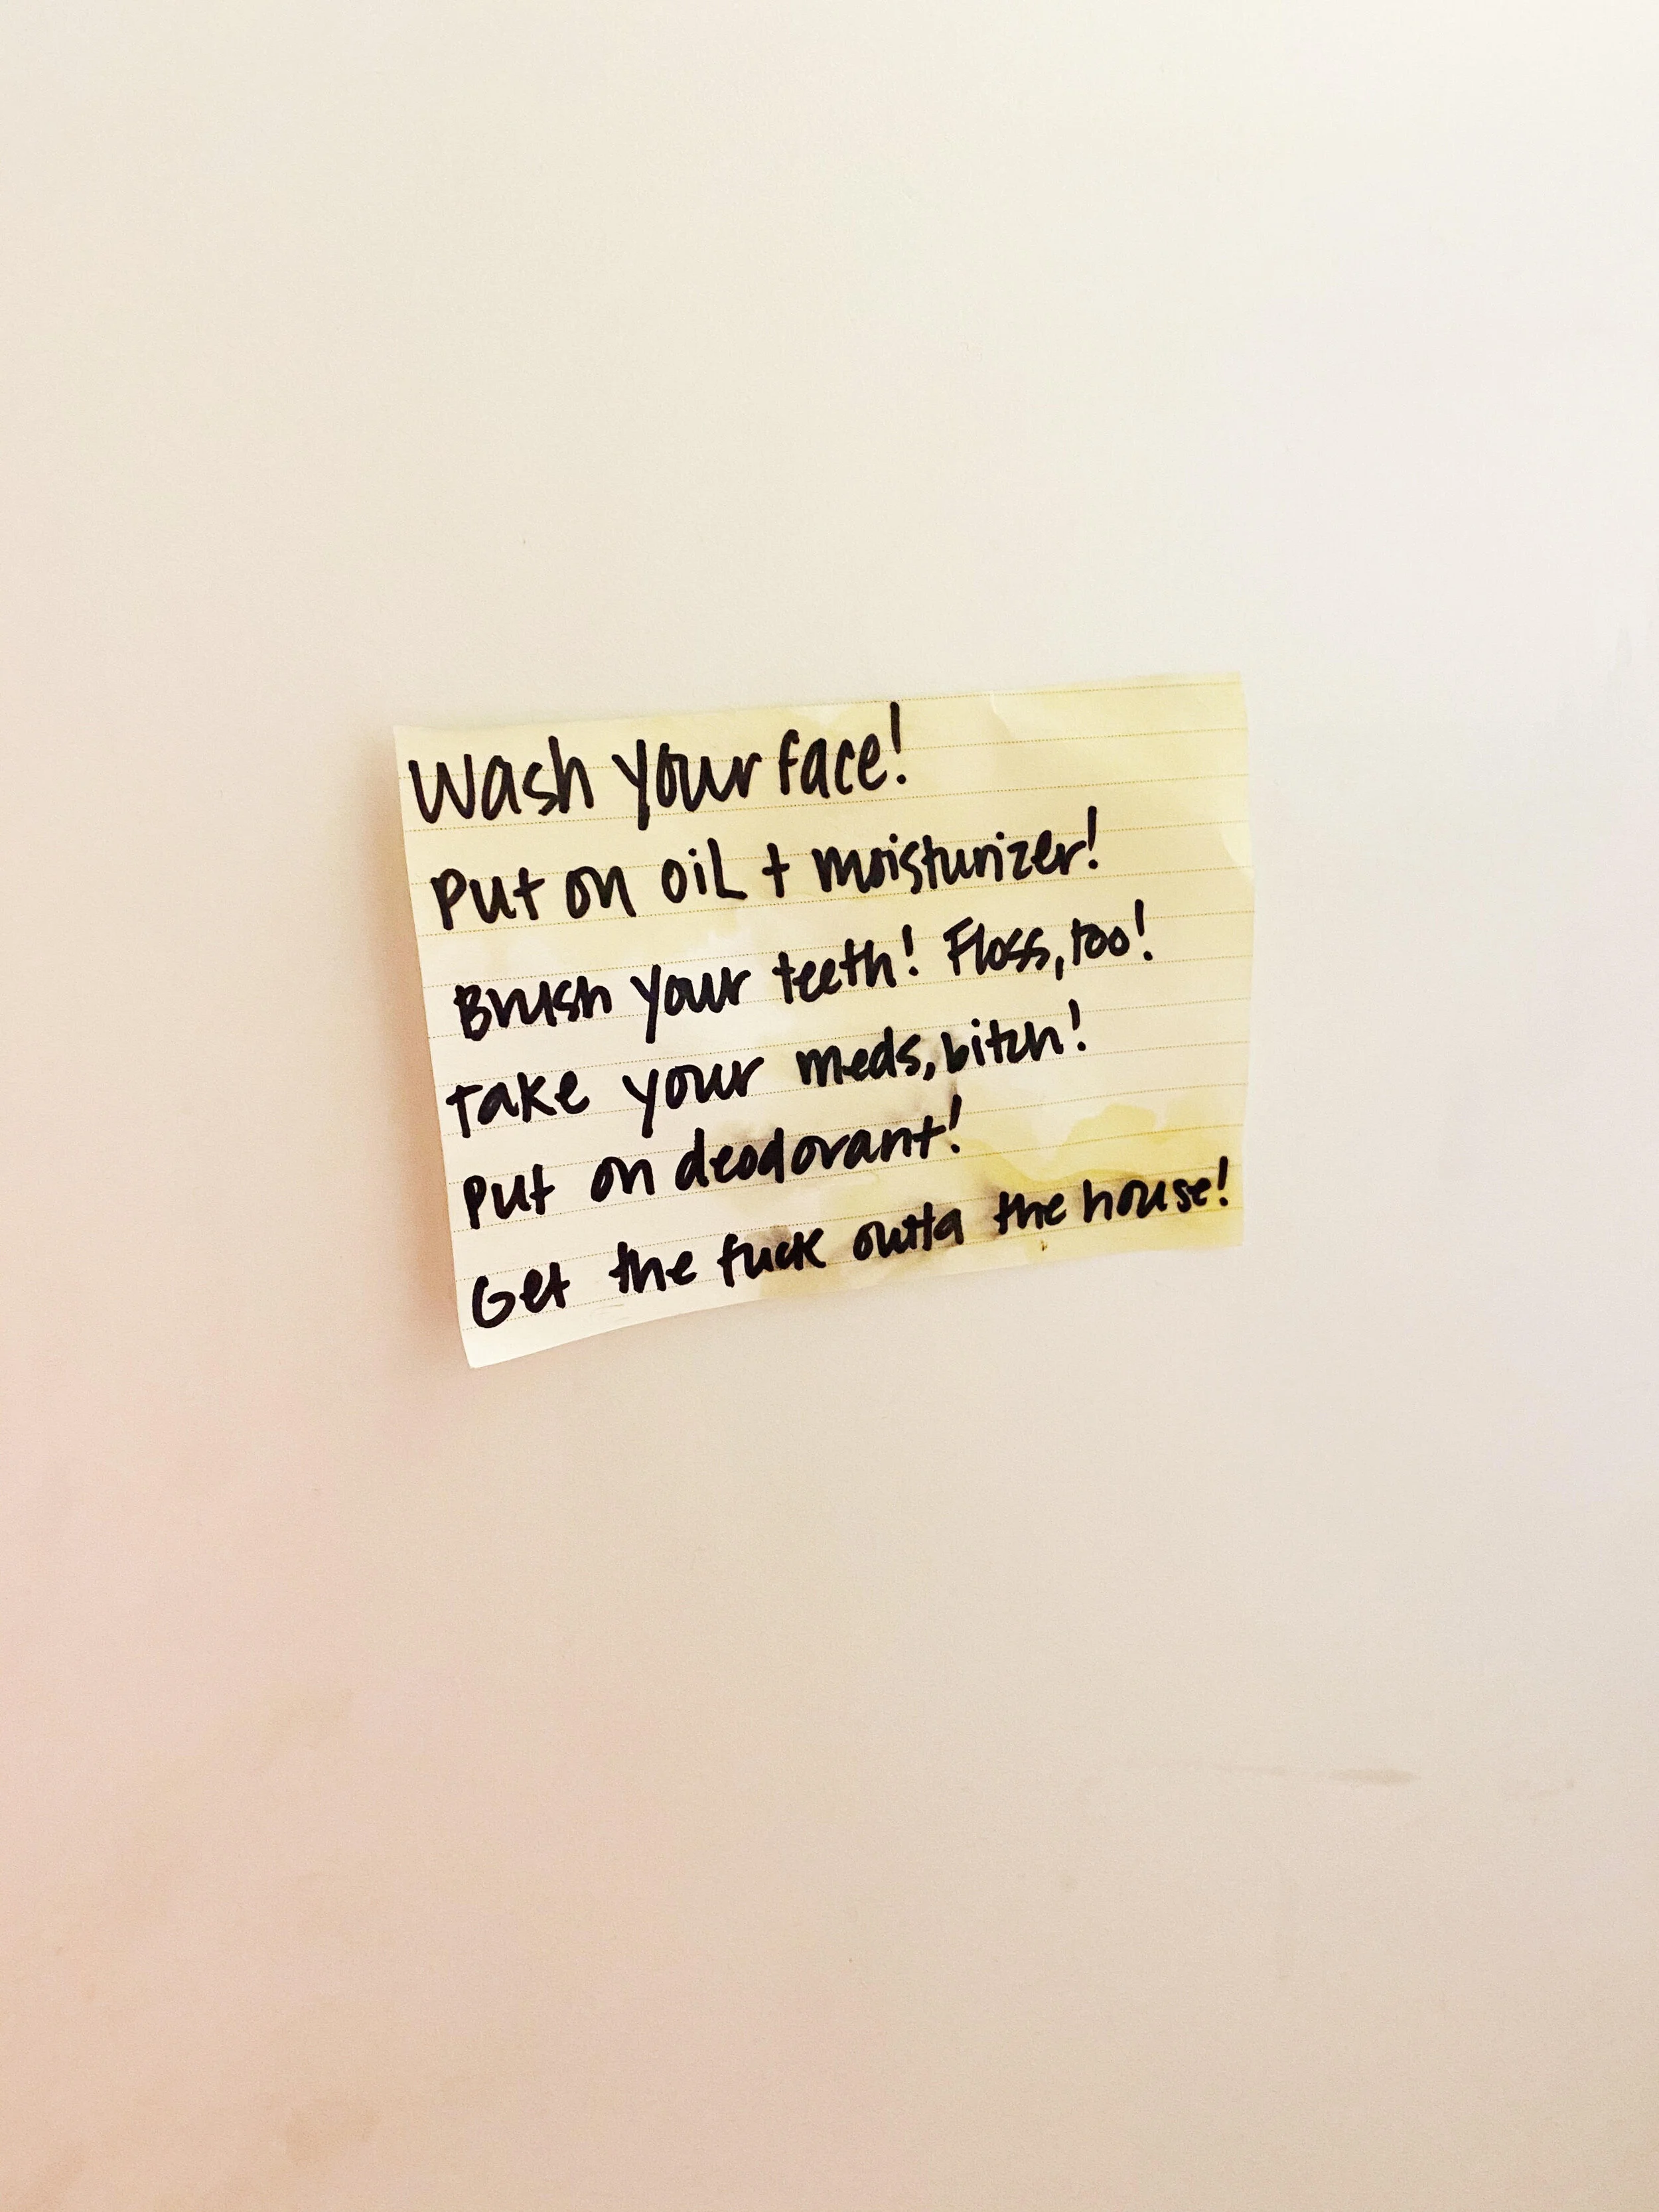 Wash your face!
Put on oil + moisturizer!
Brush your teeth! Floss, too!
Take your meds, bitch!
Put on deodorant!
Get the fuck outta the house!